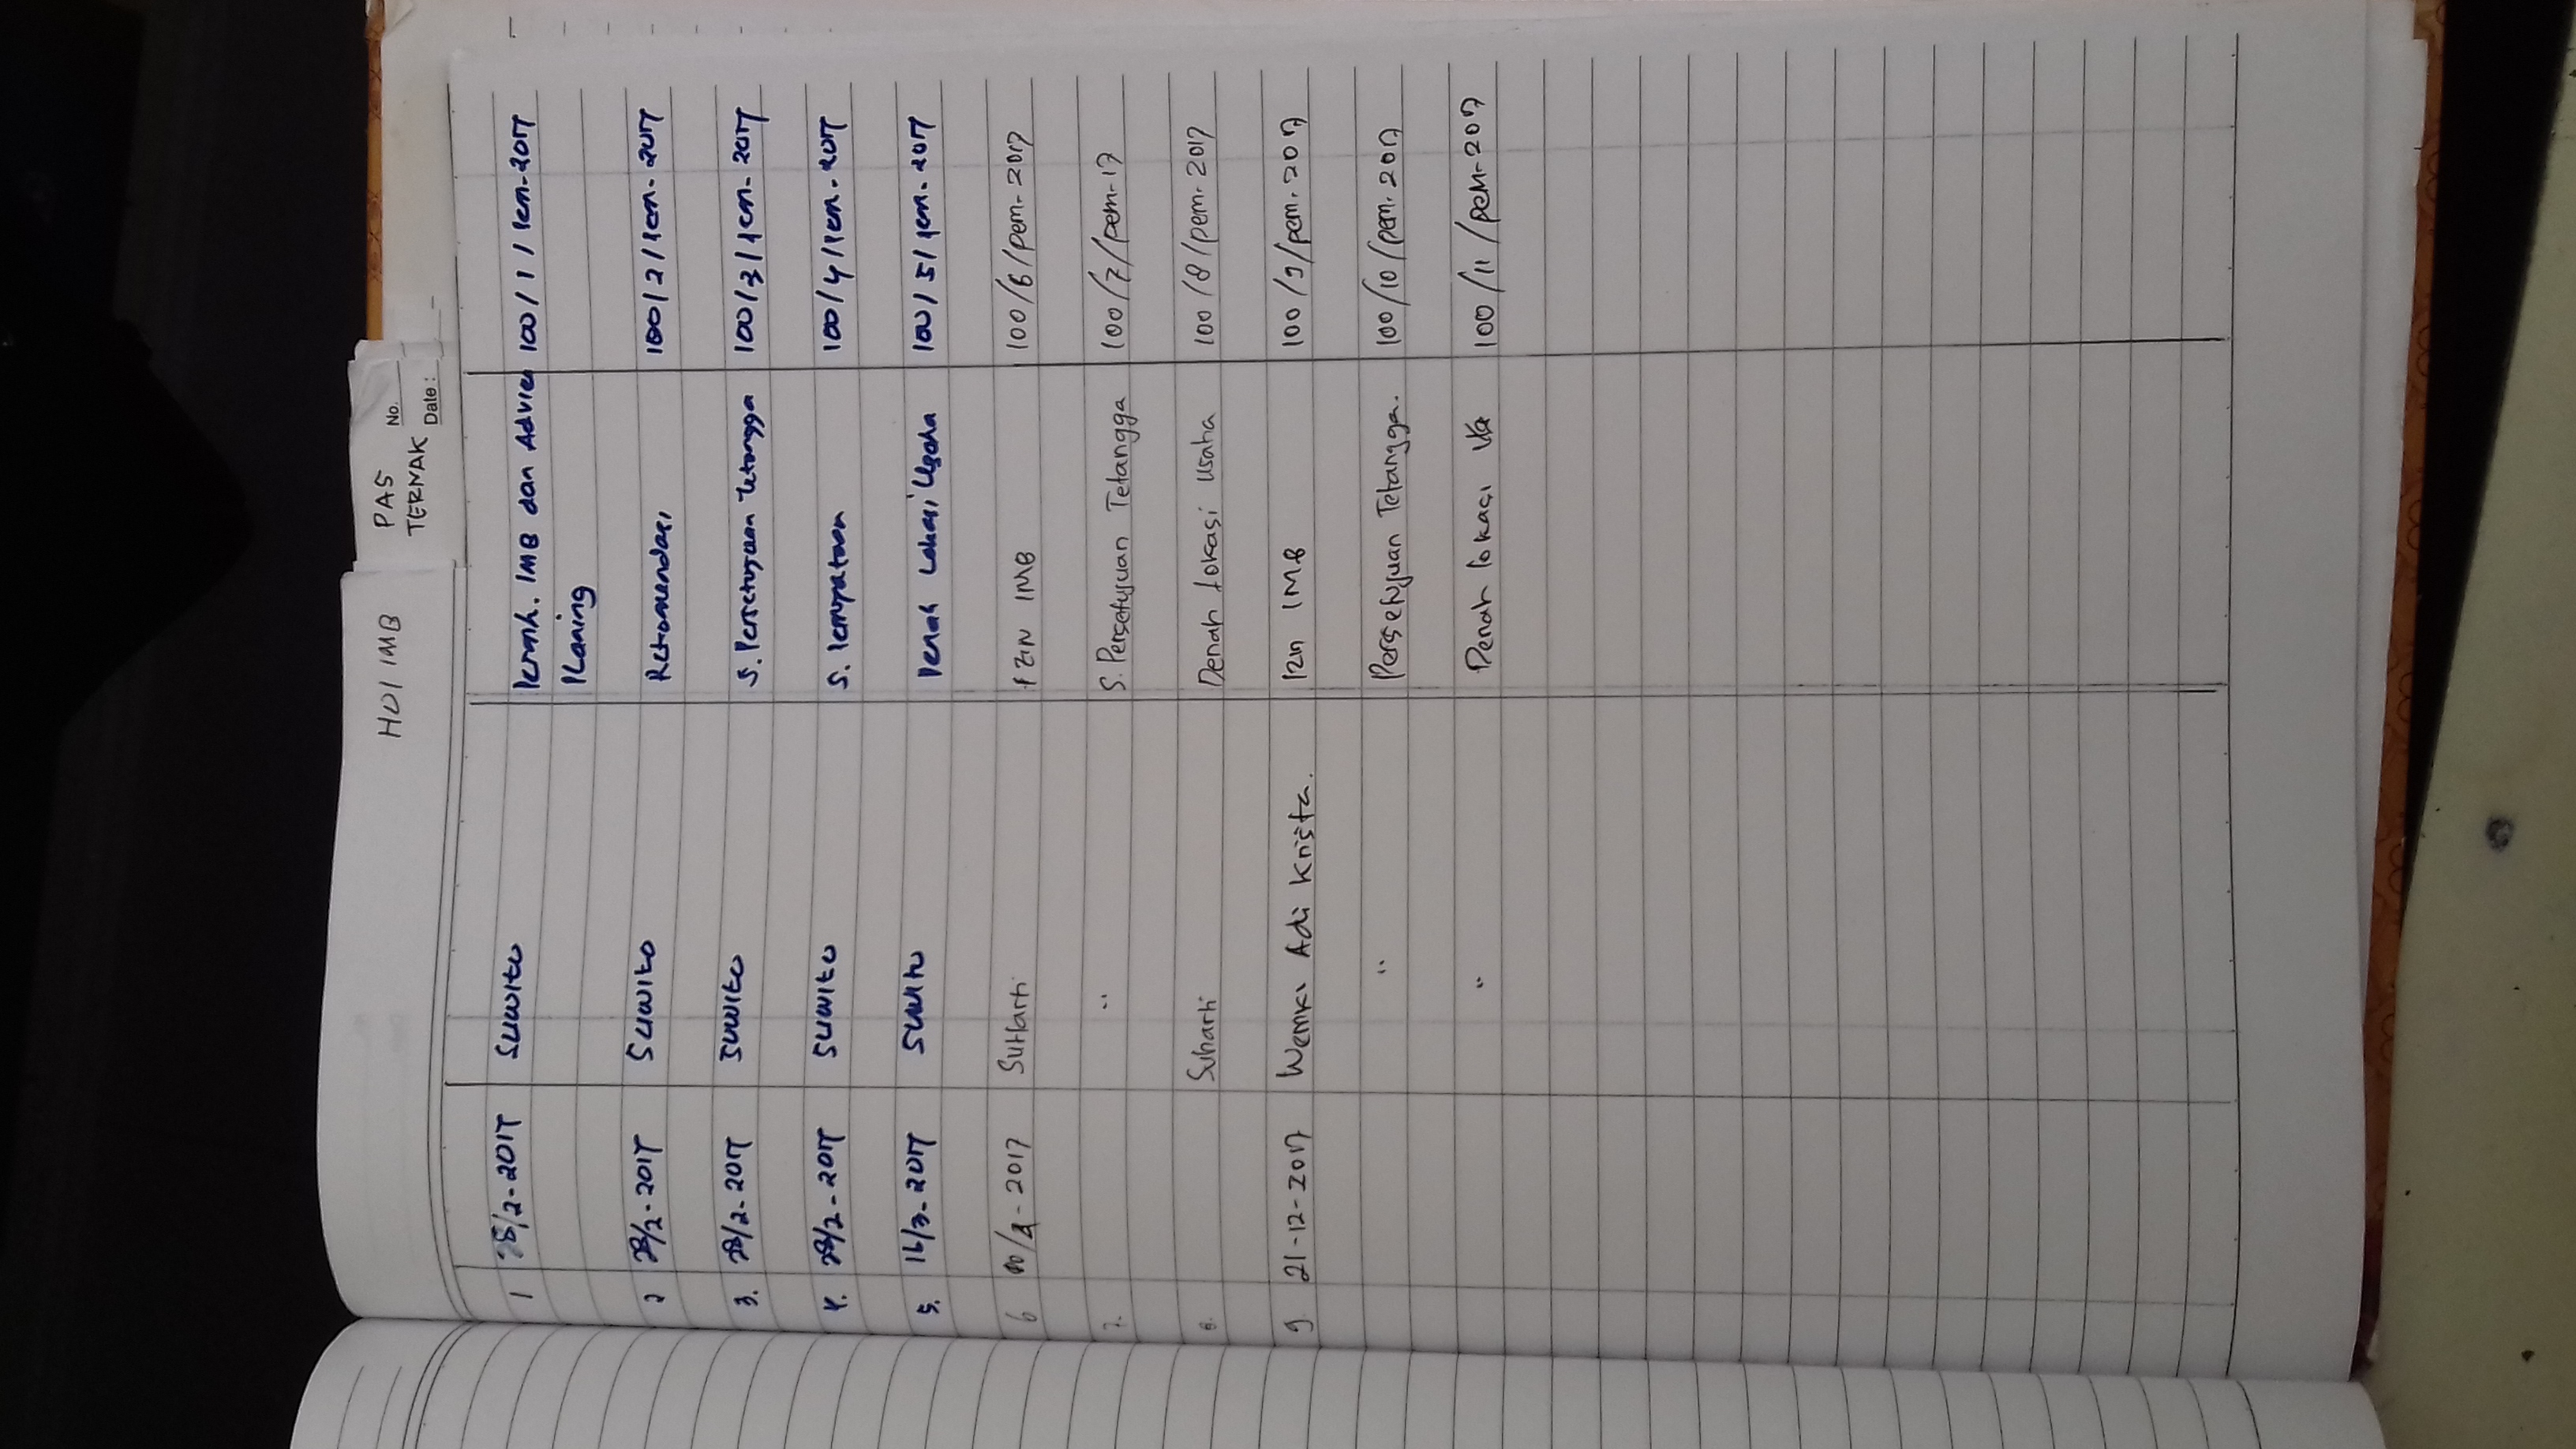 PAS
TERNAK
No.
Date:
HO / IMB
1 28/2-2017 Suwito Permh. IMB dan Advies 100/1/Pem-2017
Planing
2 28/2-2017 Suwito Rekomendasi 100/2/Pem-2017
3. 28/2-2017 Suwito S. Persetujuan tetangga 100/3/Pem-2017
4. 28/2-2017 Suwito S. Pernyataan 100/4/Pem-2017
5. 16/3-2017 Suwito Denah Lokasi Usaha 100/5/Pem-2017
6 2017 Suharti IZIN IMB 100/6/Pem-2017
7. " S. Persetujuan Tetangga 100/7/pem-17
8. Suharti Denah Lokasi Usaha 100/8/pem-2017
9. 21-12-2017 Adi Krista. Izin IMB 100/9/pem-2017
" Persetujuan Tetangga. 100/10/pem-2017
" Denah lokasi 100/11/pem-2017